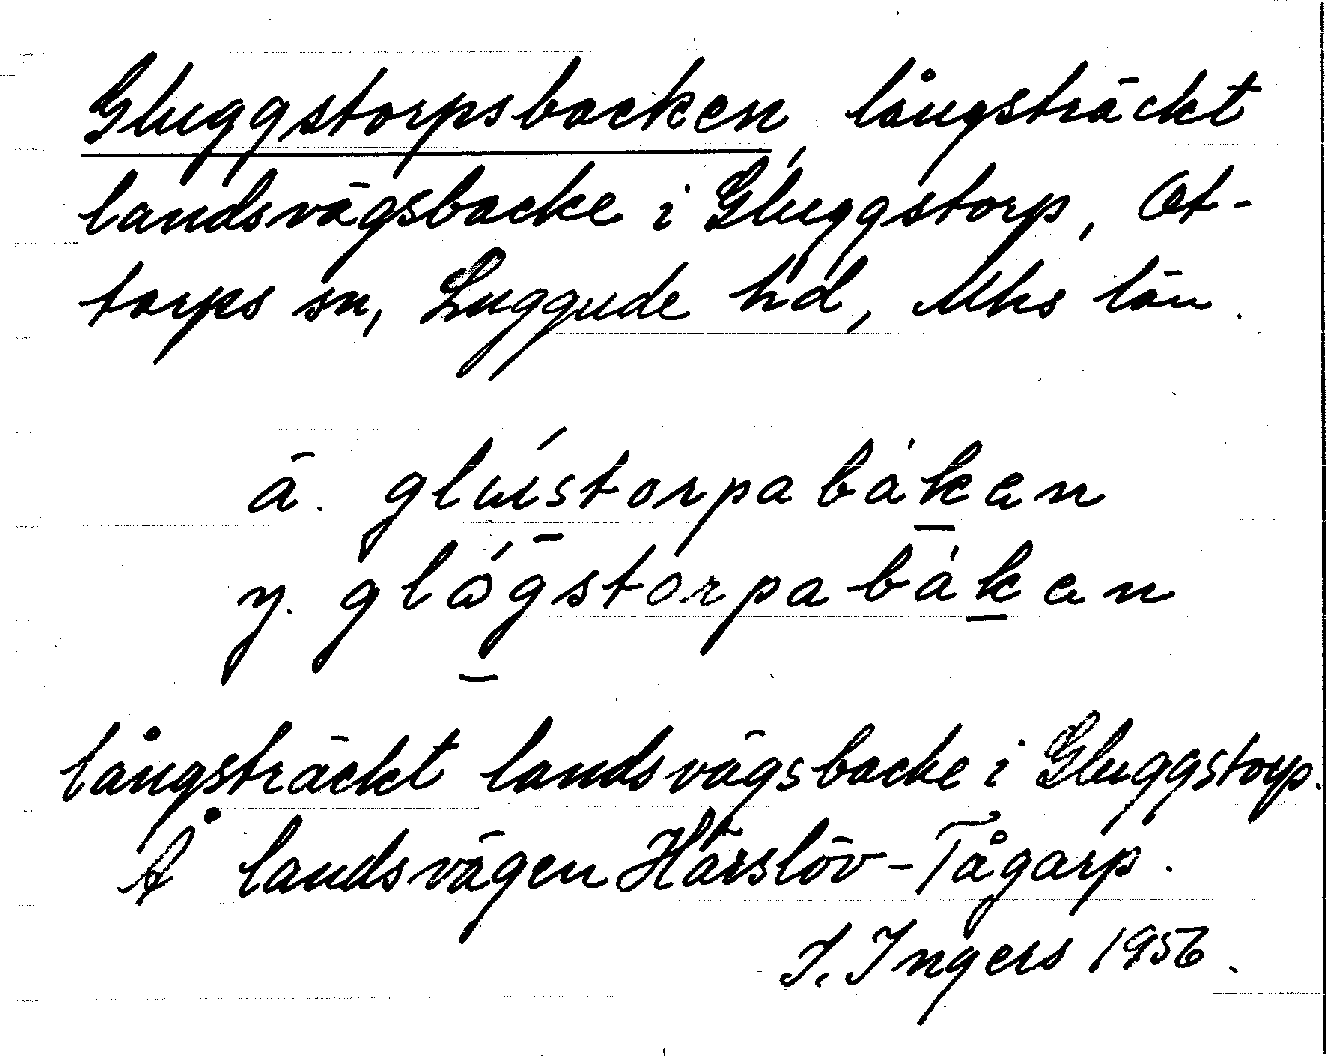 Gluggstorpsbacken, långsträckt
landsvägsbacke i Gluggstorp, Ot-
torps sn, Luggude hd, Mhs län.
ä. gluístorpabákan
y. glǫ́gstorpabákan
långsträckt landsvägsbacke i Gluggstorp.
Å landsvägen Härslöv-Tågarp.
I. Ingers 1956.